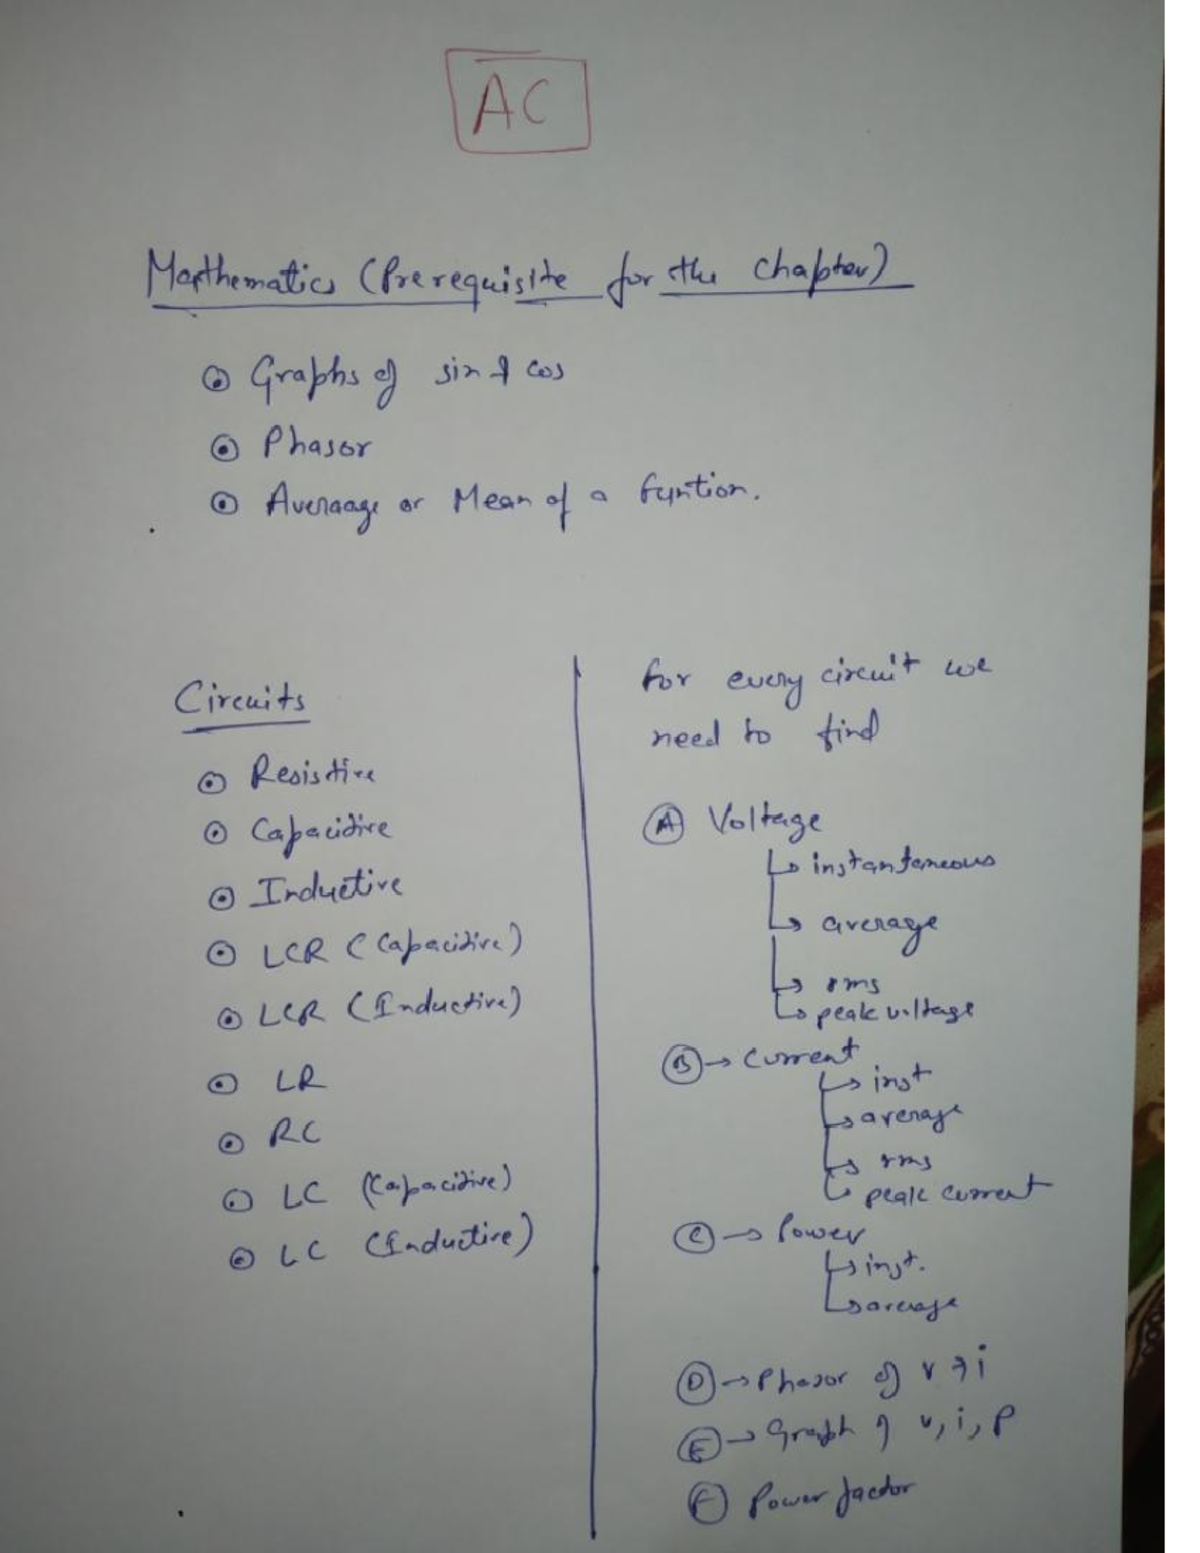 AC
Mathematics (Prerequisite for the chapter)
⊙ Graphs of sin & cos
⊙ Phasor
⊙ Averaage or Mean of a funtion.
Circuits
⊙ Resistive
⊙ Capacitive
⊙ Inductive
⊙ LCR (Capacitive)
⊙ LCR (Inductive)
⊙ LR
⊙ RC
⊙ LC (Capacitive)
⊙ LC (Inductive)
for every circuit we
need to find
Ⓐ Voltage
↳ instantaneous
↳ average
↳ rms
↳ peak voltage
Ⓑ → Current
↳ inst
↳ average
↳ rms
↳ peak current
Ⓒ → Power
↳ inst.
↳ average
Ⓓ → Phasor of v & i
Ⓔ → Graph of v, i, p
Ⓕ Power factor